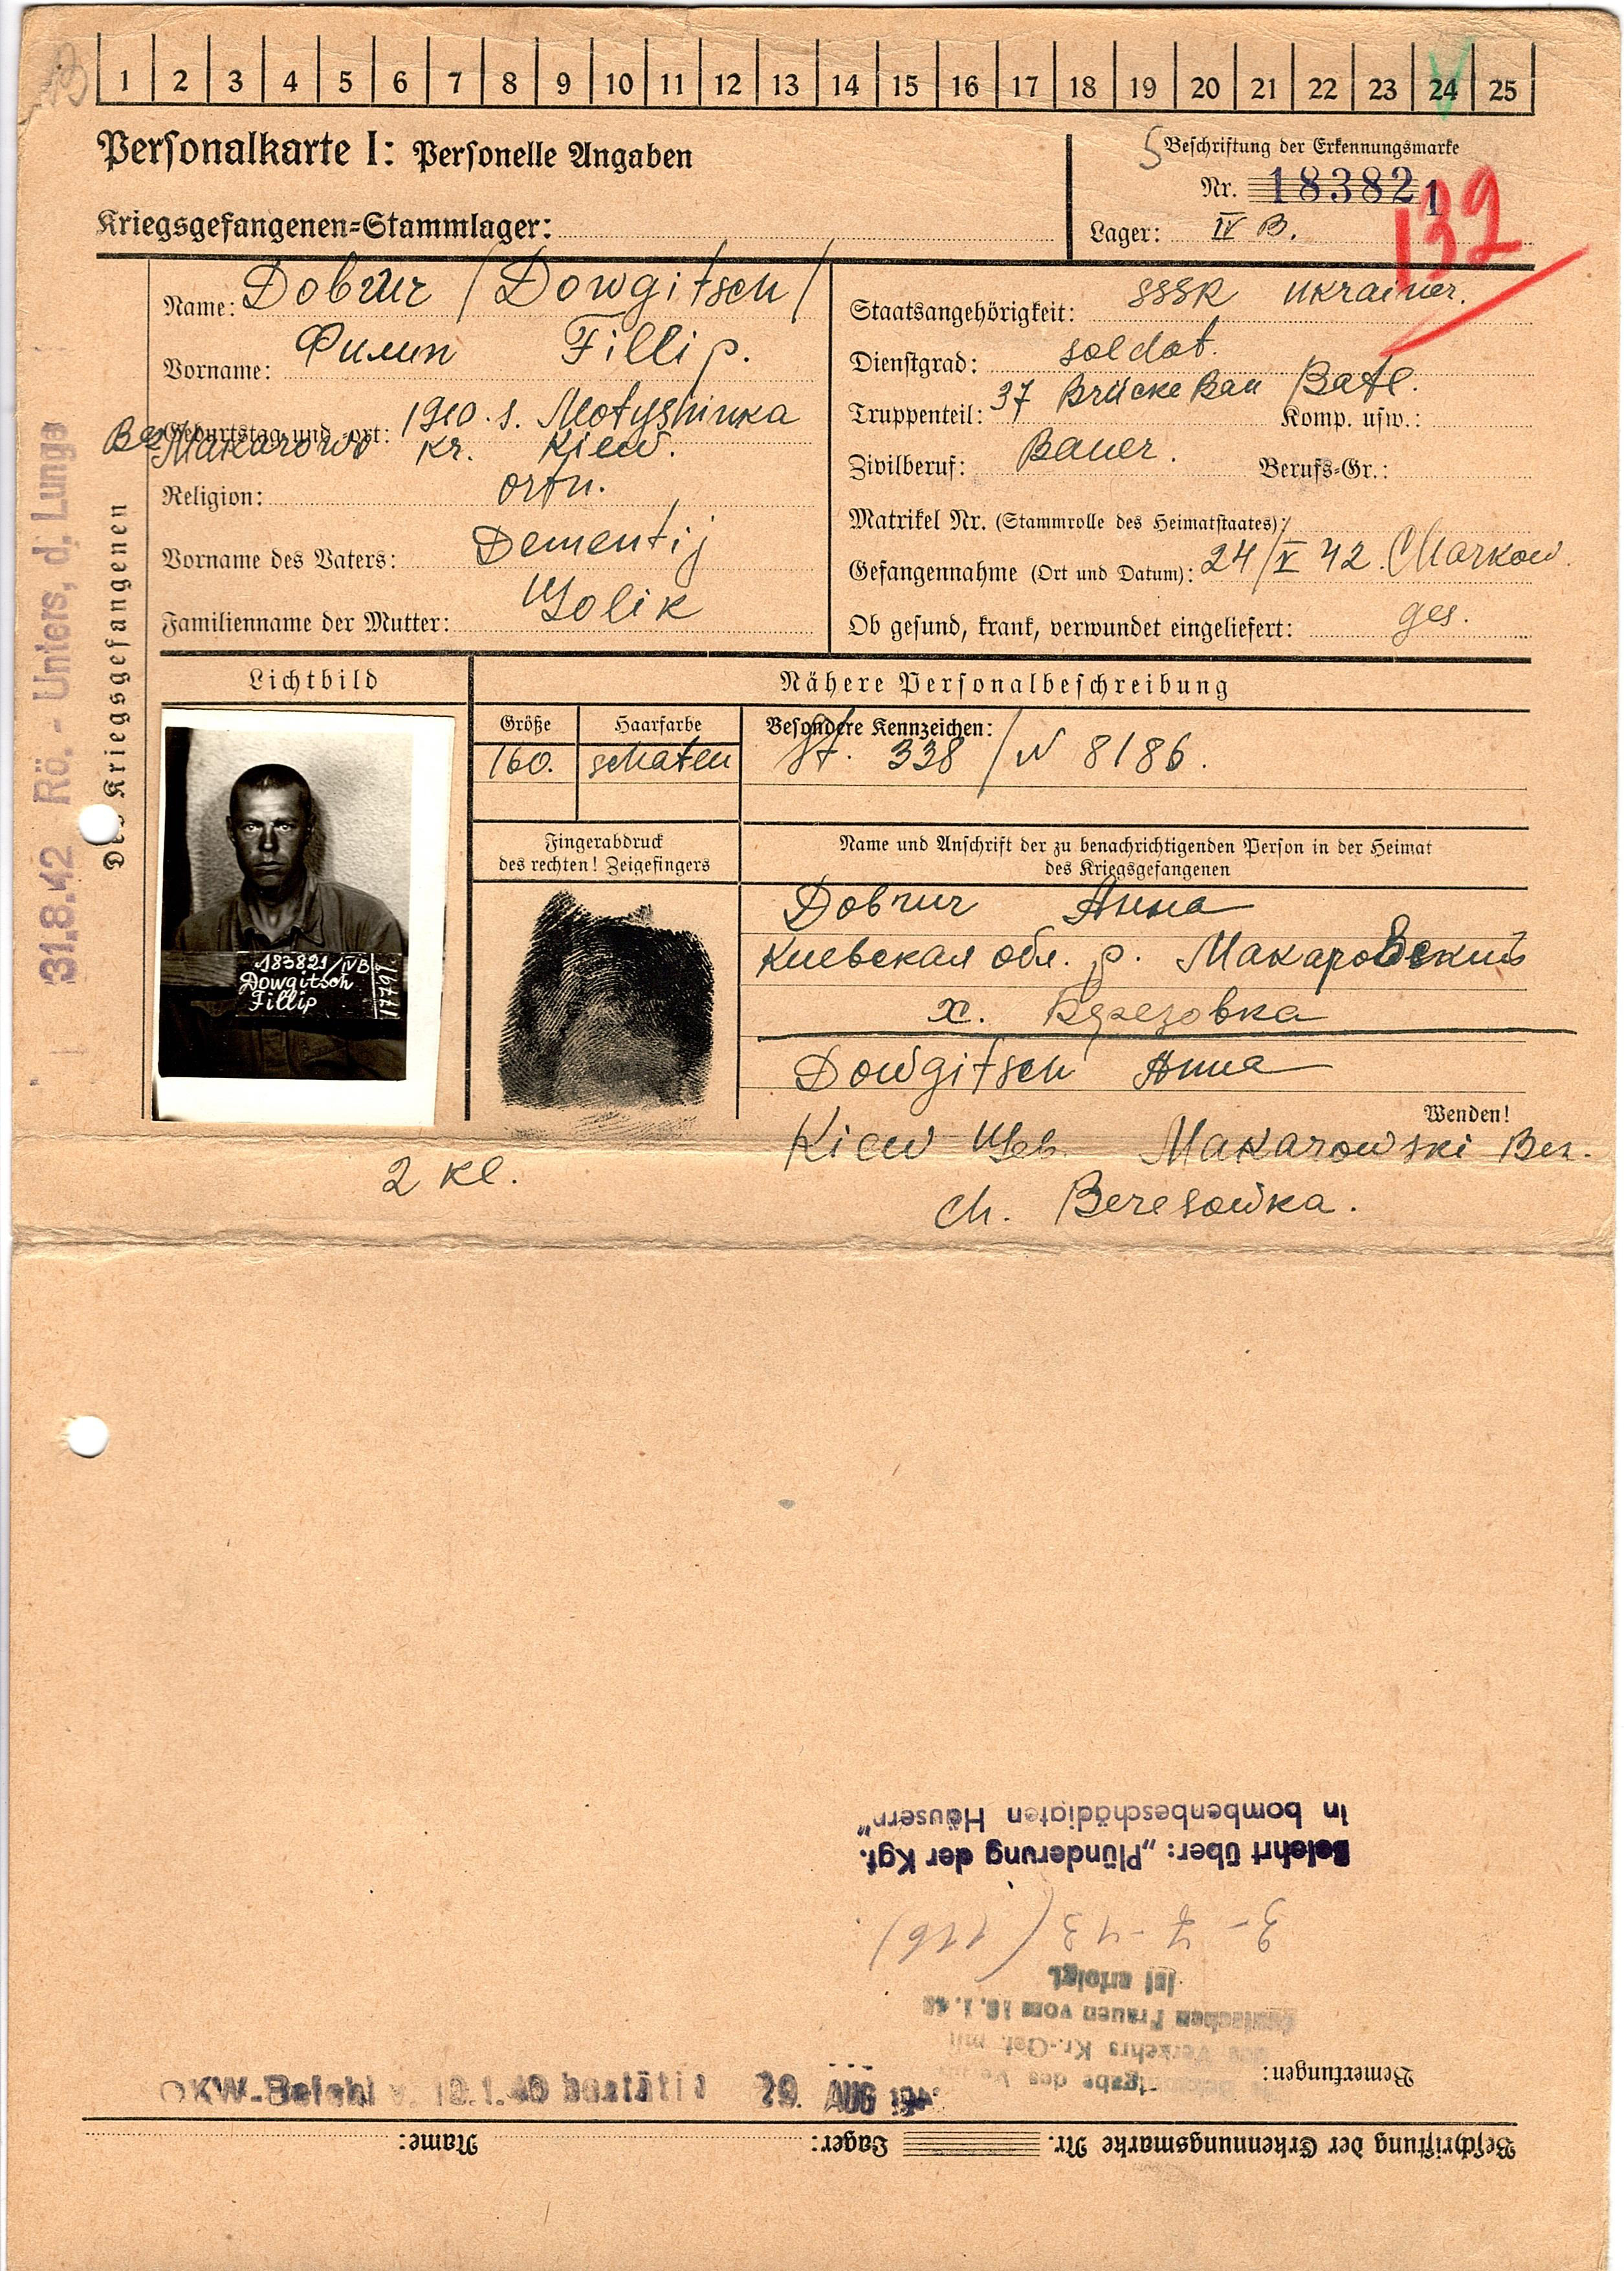 1 2 3 4 5 6 7 8 9 10 11 12 13 14 15 16 17 18 19 20 21 22 23 24 25
Personalkarte I: Personelle Angaben
Kriegsgefangenen=Stammlager:
Beschriftung der Erkennungsmarke
Nr. 183821
Lager: IV B.
132
Name: Довгич /Dowgitsch/
Vorname: Филип Fillip.
Geburtstag und -ort: 1910. s. Motyshinka
Bez Makarowo kr. Kiew.
Religion: orth.
Vorname des Vaters: Dementij
Familienname der Mutter: Golik
Staatsangehörigkeit: SSSR Ukrainer.
Dienstgrad: soldat.
Truppenteil: 37 Brücke Bau Batl. Komp. usw.:
Zivilberuf: Bauer. Berufs-Gr.:
Matrikel Nr. (Stammrolle des Heimatstaates):
Gefangennahme (Ort und Datum): 24/V 42. Charkow.
Ob gesund, krank, verwundet eingeliefert: ges.
Des Kriegsgefangenen
31.8.42 Rö.- Unters, d. Lunge
Lichtbild
Nähere Personalbeschreibung
Größe
Haarfarbe
Besondere Kennzeichen:
160.
schaten
St. 338 / N 8186.
183821/IVB
Dowgitsch
Fillip
Fingerabdruck
des rechten! Zeigefingers
Name und Anschrift der zu benachrichtigenden Person in der Heimat
des Kriegsgefangenen
Довгич Анна
Киевская обл. р. Макаровский
х. Березовка
Dowgitsch Anna
Wenden!
Kiew Geb. Makarowski Bez.
ch. Beresowka.
2 kl.
Beschriftung der Erkennungsmarke Nr. Lager: Name:
Bemerkungen:
OKW-Befehl v. 10.1.40 bestätigt 29. AUG
des Verkehrs Kr.-Gef. mit
deutschen Frauen vom 16.1.43
ist erfolgt.
3-7-43 (116)
Belehrt über: „Plünderung der Kgf.
in bombenbeschädigten Häusern"